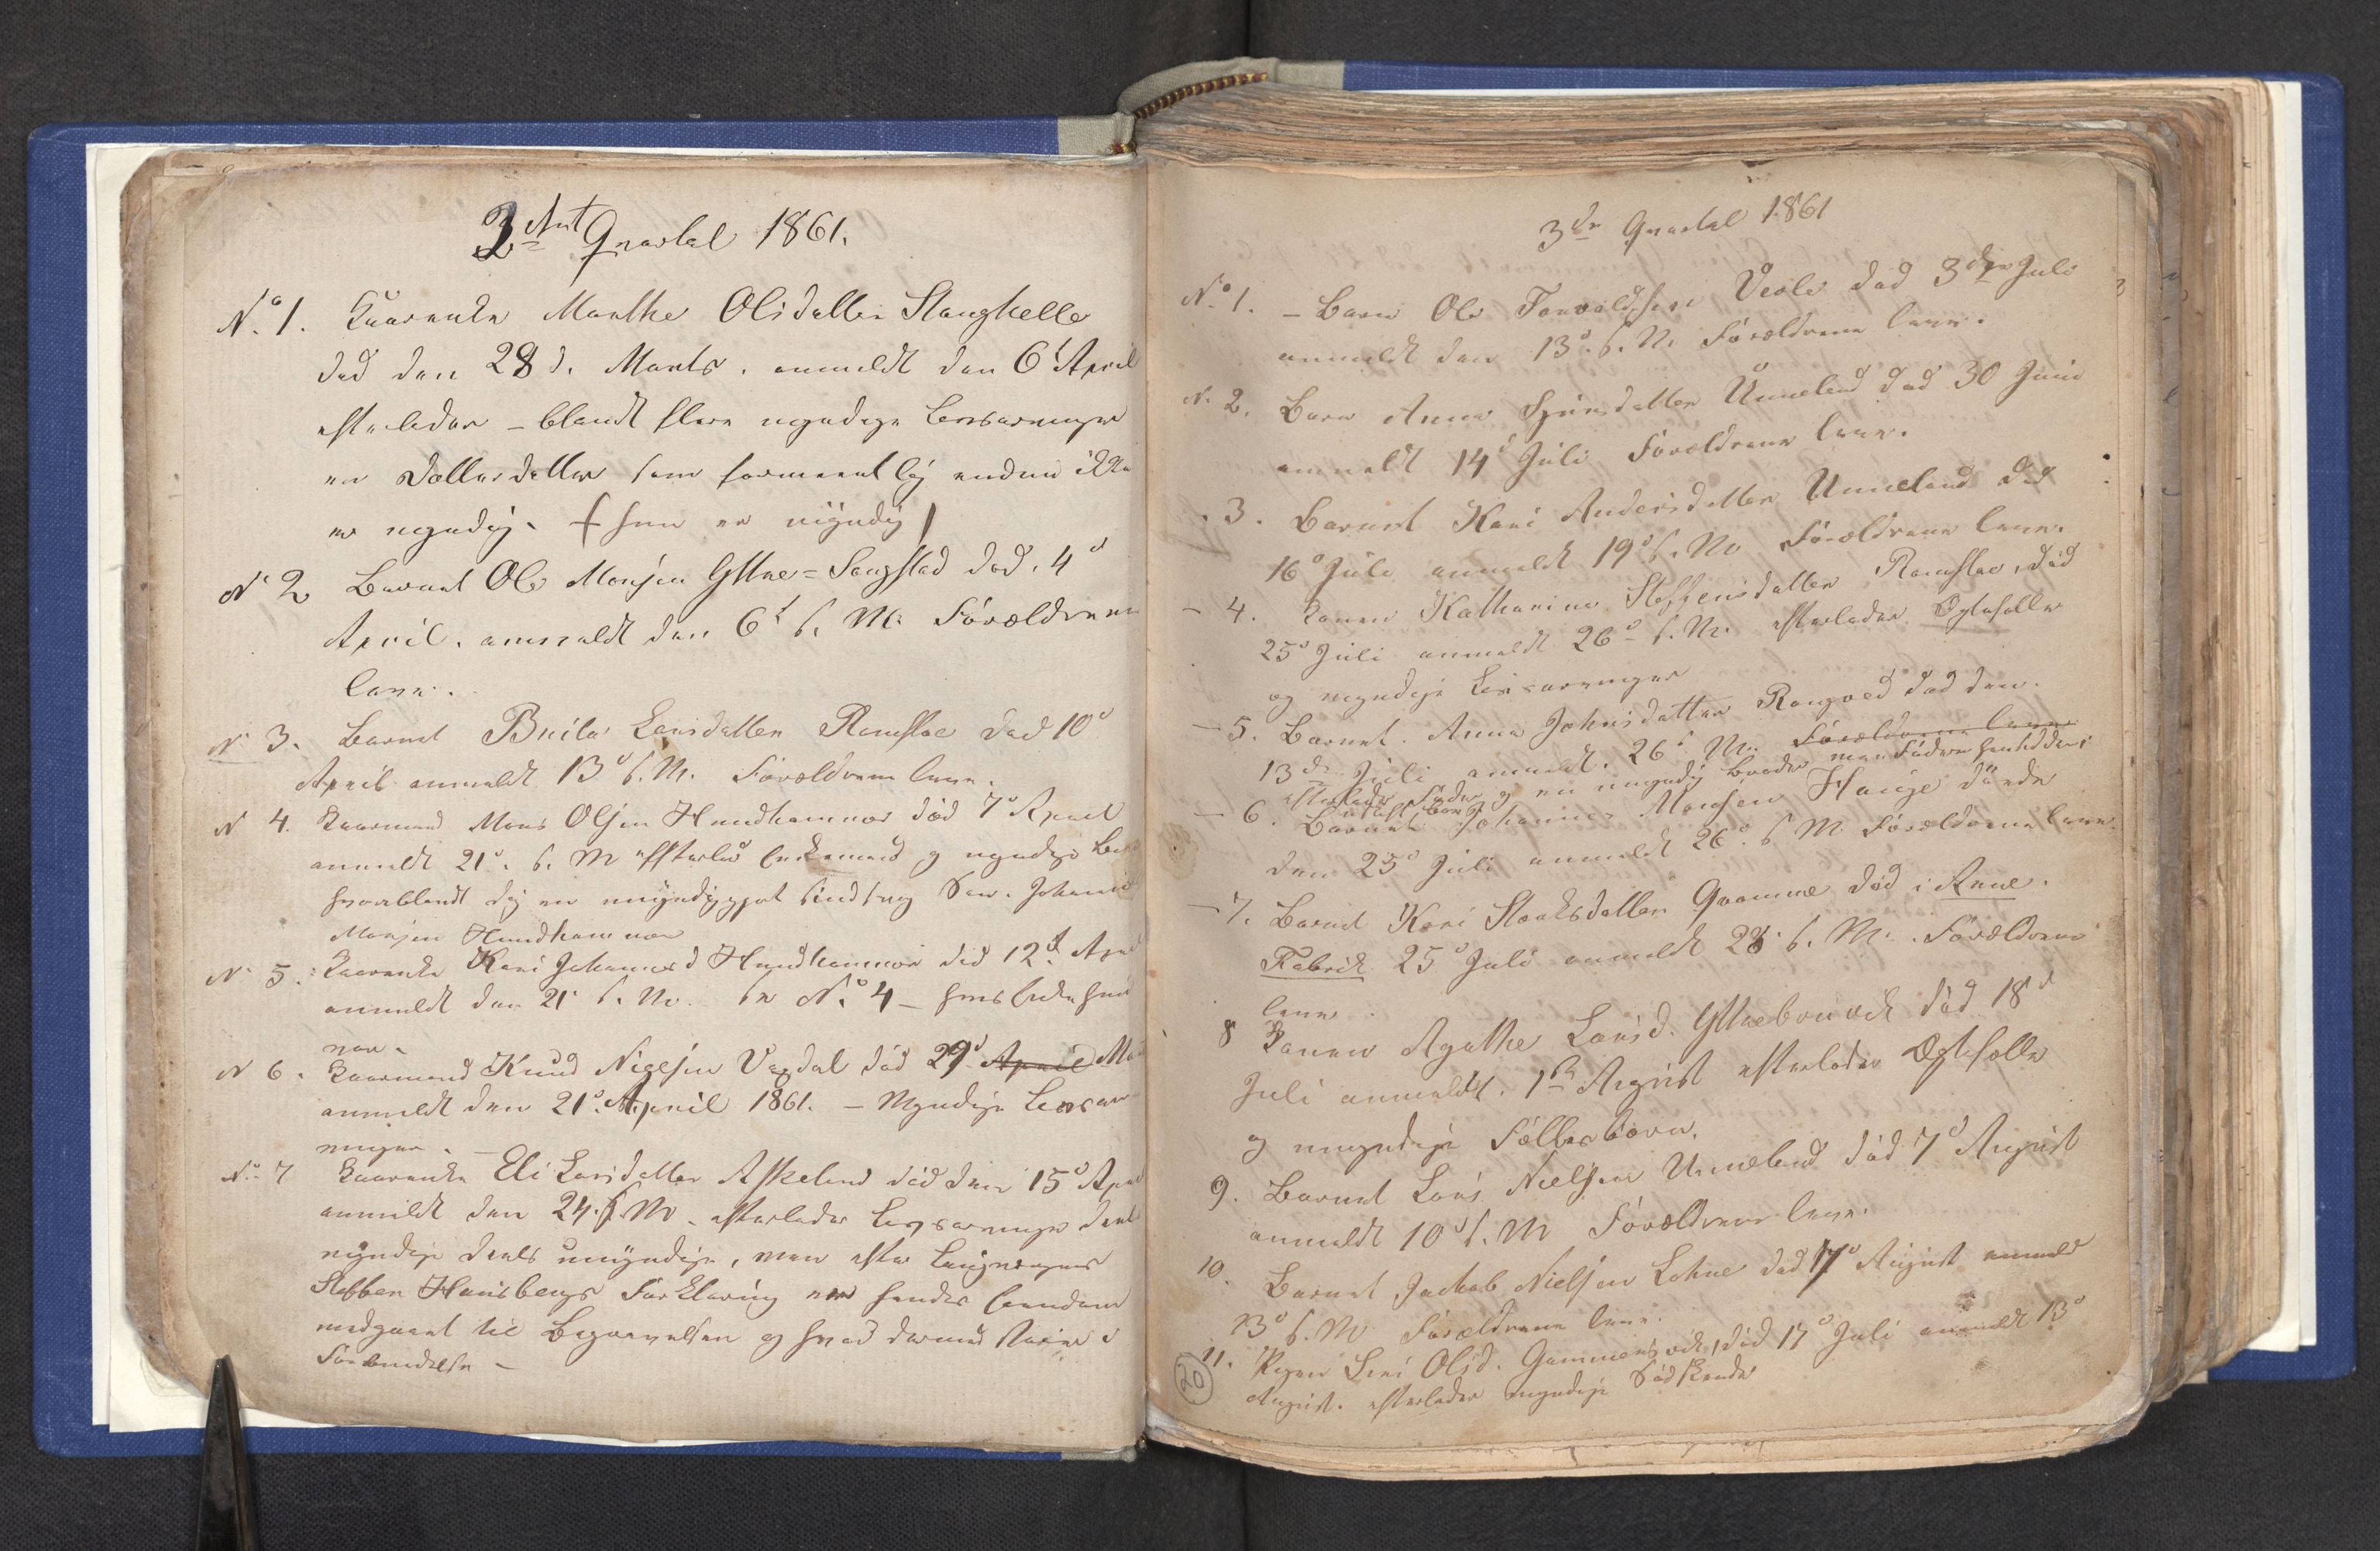 2det Qvartal 1861.
No 1. Kaarenke Marthe Olsdatter Stanghelle
død den 28 d. Marts. anmeldt den 6t April
efterlader – blandt flere myndige Livsarvinger
en Datterdatter som formeentlig endnu ikke
er myndig. – hun er myndig
N 2 Barnet Ole Monsen Yttre=Songstad død. 4d
April. anmeldt den 6t s. M. Forældrene
leve.
N 3. Barnet Brita Larsdatter Ramslae død 10d
April anmeldt 13d s. M. Forældrene leve.
N 4. Kaarmand Mons Olsen Hundhammer død 7d April
anmeldt 21d. s. M efterlod Enke og myndige
hvoriblandt dog en umyndiggjort Søn. Johannes
Monsen Hundhammer
N 5. Kaarenke Kari Johannesd Hundhammer død 12t April
anmeldt den 21 s. M. See No 4 –
N 6. Kaarmand Knud Nielsen Vaxdal død 29d April
anmeldt den 21d. April 1861. – Myndige Livsar-
vinger. –
No 7 Kaarenke Eli Larsdatter Askeland død den 15d April
anmeldt den 24. s. M. efterlader Livsarvinger deels
myndige deels umyndige, men efter
Steffen Hansbergs Forklaring er hendes Eiendom
medgaaet til Begravelsen og hvad dermed staaer i
Forbindelse –
3die Qvartal 1861
No 1. – Barn Ole Torvaldsen Veole død 3die Juli
anmeldt den 13d. s. M. Forældrene leve.
N. 2. Barn Anna Sjursdatter Unneland død 30 Juni
anmeldt 14d Juli Forældrene leve.
3. Barnet Kari Andersdatter Unneland død
16d Juli anmeldt 19d s. M Forældrene leve.
– 4. Konen Katharina Steffensdatter Ramslae, død
25d Juli anmeldt 26d s. M. efterlader Ægtefælle
og myndige Livsarvinger
– 5. Barnet. Anna Johnsdatter Rongved død den
13de Juli anmeldt. 26d M. Forældrene leve
efterlader Fader og en myndig Broder men Faderen
– 6. Barnet Johannes Monsen Hauge døde
den 25d Juli anmeldt 26d. s M Forældrene leve.
– 7. Barnet Kari Steaksdatter Qvamme død i Arne
Fabrik 25d Juli anmeldt 28. s. M. Forældrene
leve.
8 Konen Agathe Larsd. Yttrebruvik død 18d
Juli anmeldt. 1ste August efterlader Ægtefælle
og umyndige Fællesbørn.
9. Barnet Lars Nielsen Unneland død 7d August
anmeldt 10d s. M Forældrene leve.
10. Barnet Jachob Nielsen Lohne død 17d August anmeldt
23d s. M Forældrene leve.
11. Pigen Siri Olsd. Gammersvik, død 17d Juli anmeldt 13d
August. efterlader myndige Sødskende
20